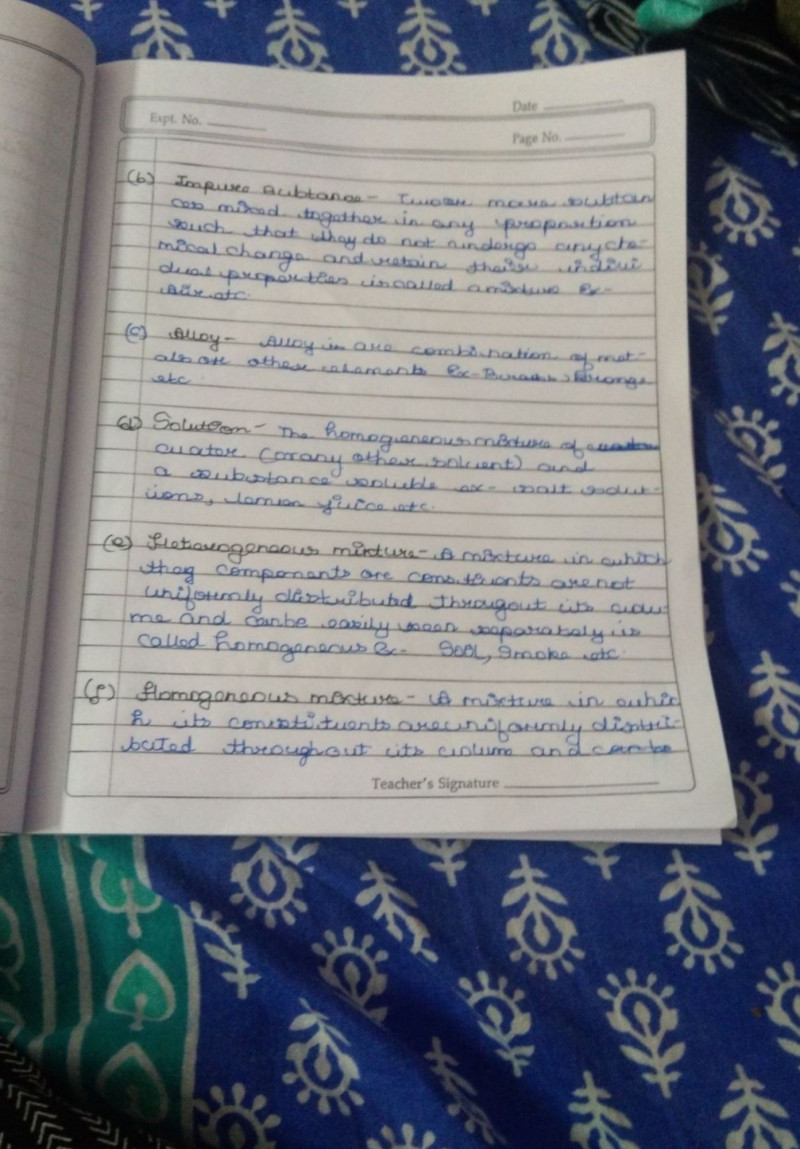 Date
Expt. No.
Page No.
(b) Impure Subtance - Two or more subtan
ces mixed together in any proportion
such that they do not undergo any che-
mical change and retain their indivi
dual properties is called a mixture Ex-
Air etc.
(c) Alloy - Alloy in are combination of met-
als or other elements Ex- Brass, Bronge
etc
(d) Solution - The homogeneous mixture of
water (or any other solvent) and
a substance soluble ex- salt solut-
ions, lemon juice etc.
(e) Heterogeneous mixture - A mixture in which
they components are constituents are not
uniformly distributed througout its
me and can be easily seen separately is
called homogeneous Ex- Soil, Smoke etc.
(f) Homogeneous mixture - A mixture in whic
h its constituents are uniformly distri-
buted throughout its volum and can be
Teacher's Signature